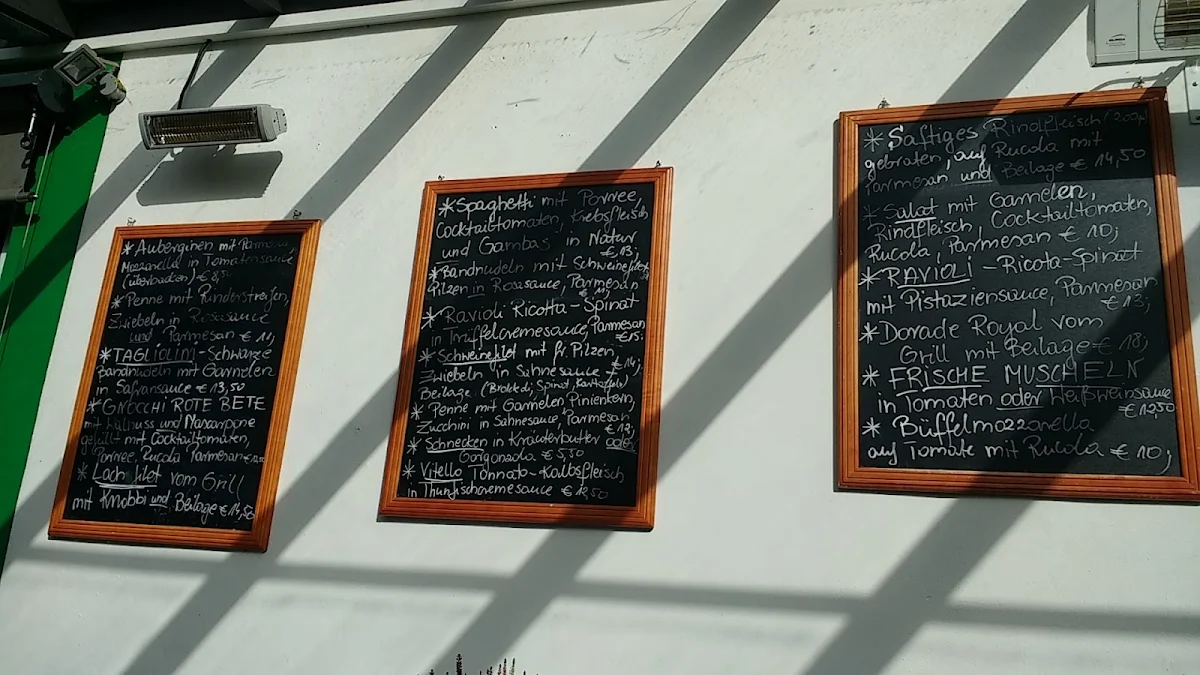 * Auberginen mit Parmesan,
Mozzarella in Tomatensauce
(überbacken) € 8,50
* Penne mit Rinderstreifen,
Zwiebeln in Rosasauce
und Parmesan € 11,
* TAGLIOLINI - Schwarze
Bandnudeln mit Garnelen
in Safransauce € 13,50
* GNOCCHI ROTE BETE
mit Walnuss und Mascarpone
gefüllt mit Cocktailtomaten,
Porree, Rucola Parmesan €
* Lachsfilet vom Grill
mit Knobbi und Beilage € 14,50
* Spaghetti mit Porree,
Cocktailtomaten, Krebsfleisch
und Gambas in Natur
€ 13,
* Bandnudeln mit Schweinefilet,
Pilzen in Rosasauce, Parmesan
€ 11,
* Ravioli Ricotta - Spinat
in Trüffelcremesauce, Parmesan
€ 15.
* Schweinefilet mit fr. Pilzen,
Zwiebeln in Sahnesauce € 14,
Beilage (Brokkoli, Spinat, Kartoffeln)
* Penne mit Garnelen Pinienkern,
Zucchini in Sahnesauce, Parmesan
€ 12,
* Schnecken in Kräuterbutter oder
Gorgonzola € 5,50
* Vitello Tonnato - Kalbsfleisch
in Thunfischcremesauce € 12,50
* Saftiges Rindfleisch (200g)
gebraten, auf Rucola mit
Parmesan und Beilage € 14,50
* Salat mit Garnelen,
Rindfleisch, Cocktailtomaten,
Rucola, Parmesan € 10,
* RAVIOLI - Ricota - Spinat
mit Pistaziensauce, Parmesan
€ 13,
* Dorade Royal vom
Grill mit Beilage € 18,
* FRISCHE MUSCHELN
in Tomaten oder Weißweinsauce
€ 12,50
* Büffelmozzarella
auf Tomate mit Rucola € 10,